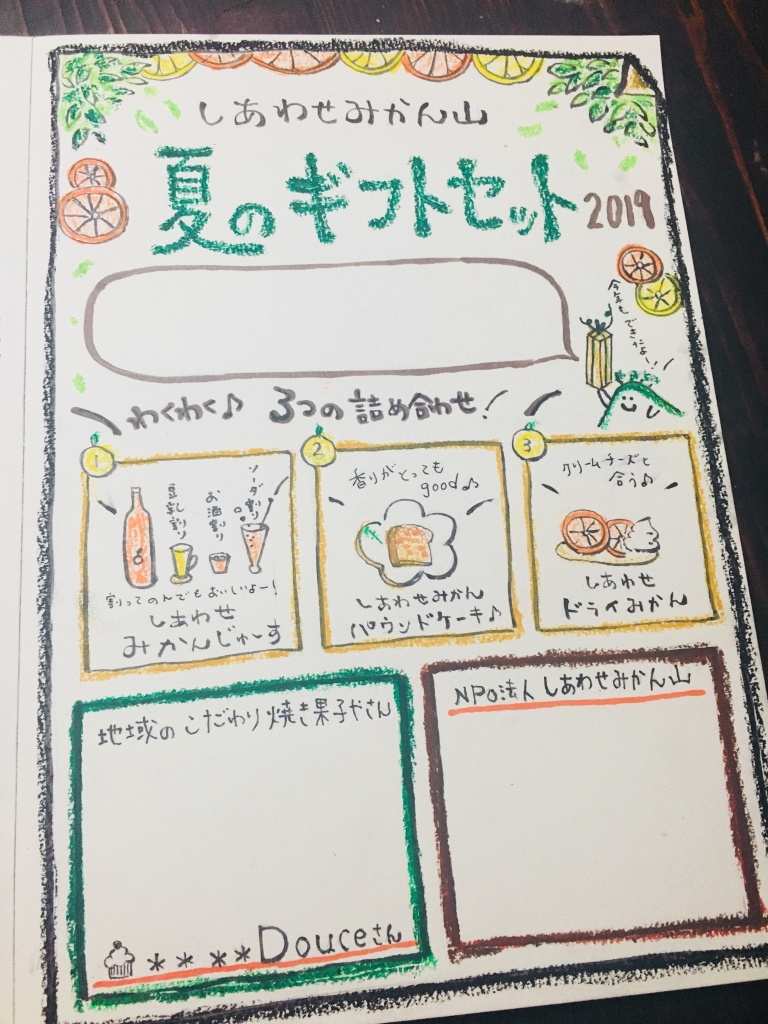 しあわせみかん山
夏のギフトセット 2019
今年もできたよー!!
わくわく♪ 3つの詰め合わせ!
1
豆乳割り
お酒割り
ソーダ割り
割ってのんでもおいしいよー!
しあわせ
みかんじゅーす
2
香りがとっても
good♪♪
しあわせみかん
パウンドケーキ♪
3
クリームチーズと
合う♪
しあわせ
ドライみかん
地域のこだわり焼き菓子やさん
****Douceさん
NPO法人しあわせみかん山